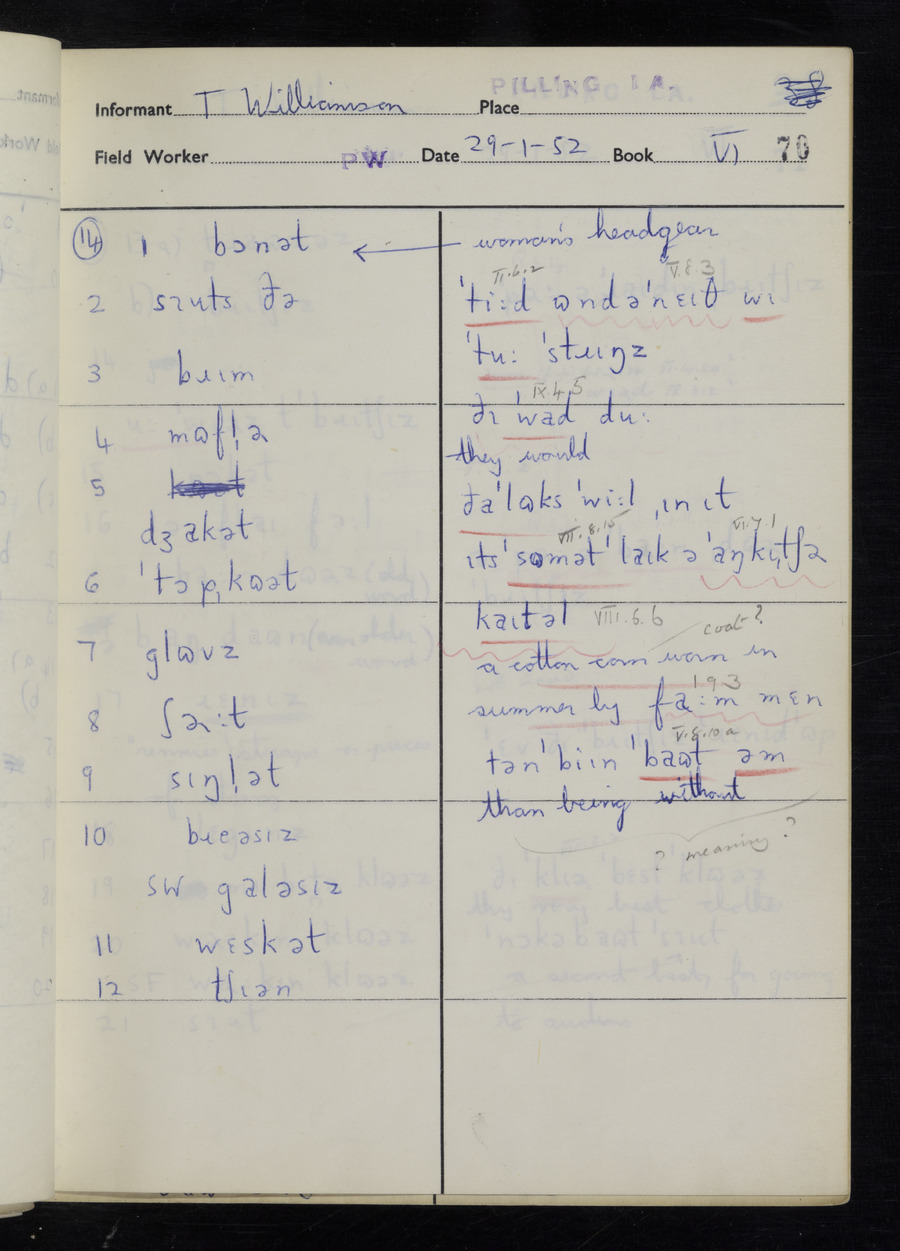 Informant T Williamson Place PILLING LA.
Field Worker PW Date 29-1-52 Book VI 70
14 1 bɔnət ← woman's headgear
2 sɪuts ðə
3 bɹɪm
4 mɷfl̩ə
5
dʒakət
6 ˈtɔpˌkɷət
7 glɷvz
8 ʃəːt
9 sɪŋl̩ət
10 bɹeəsɪz
SW galəsɪz
11 wɛskət
12 tʃɪən
II.6.2 V.8.3
ˈtiːd ɷndəˈnɛɪθ wɪ
ˈtuː ˈstɹɪŋz
IX.4.5
ðɪ ˈwad duː
they would
ðəˈlɷks ˈwiːl ˌɪn ɪt
VIII.8.15 VI.7.1
ɪtsˈsɷmət ˈlaɪk ə ˈaŋkɪˌtʃə
kaɪtəl VIII.6.6
coat?
a cotton worn in
193
summer by faːm mɛn
V.8.10a
tənˈbiɪn ˈbaɷt əm
than being without
? meaning ?